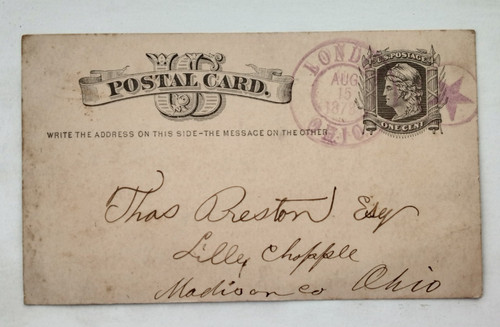 US
POSTAL CARD.
WRITE THE ADDRESS ON THIS SIDE-THE MESSAGE ON THE OTHER
LONDON
AUG
15
OHIO
U.S. POSTAGE
ONE CENT
Thos Preston Esq
Lilly Chapple
Madison co Ohio